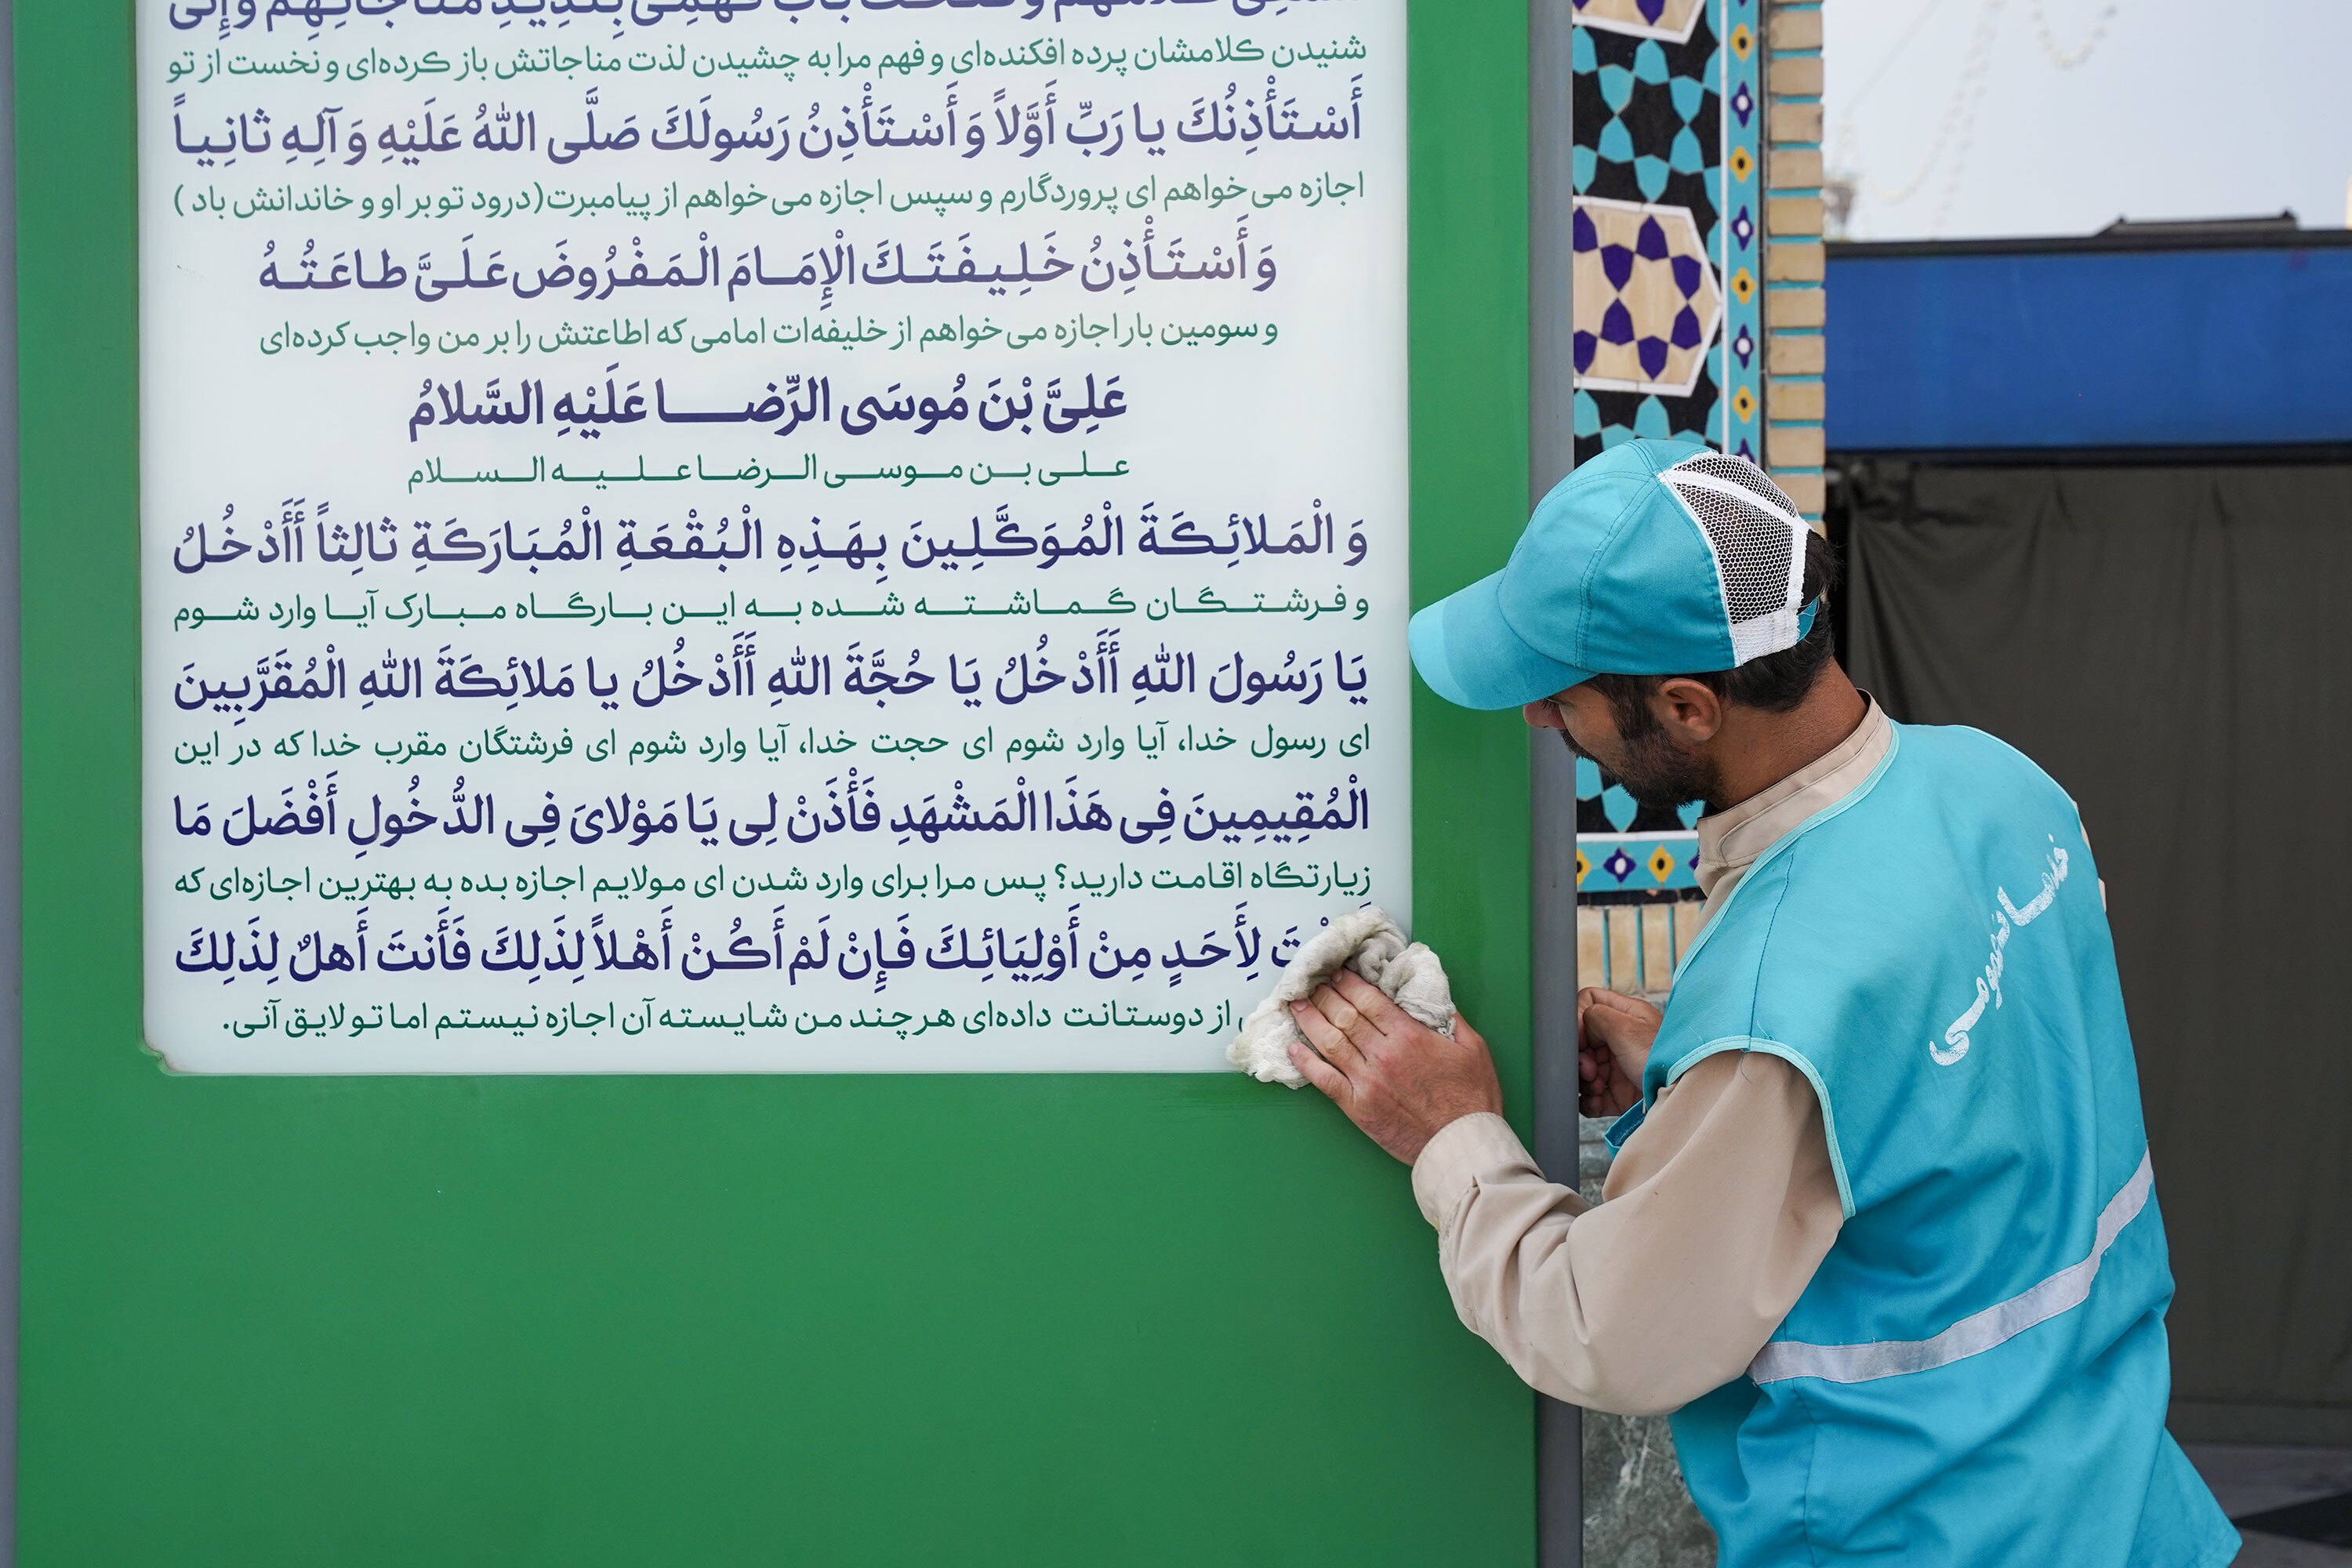 كلامهم وفتحت باب فهمی بلذيذ مناجاتهم وإنی
شنیدن کلامشان پرده افکنده‌ای و فهم مرا به چشیدن لذت مناجاتش باز کرده‌ای و نخست از تو
أَسْتَأْذِنُكَ يا رَبِّ أَوَّلاً وَ أَسْتَأْذِنُ رَسُولَكَ صَلَّى اللهُ عَلَيْهِ وَ آلِهِ ثانِياً
اجازه می‌خواهم ای پروردگارم و سپس اجازه می‌خواهم از پیامبرت(درود تو بر او و خاندانش باد )
وَ أَسْتَأْذِنُ خَلِيفَتَكَ الْإِمَامَ الْمَفْرُوضَ عَلَىَّ طاعَتُهُ
و سومین بار اجازه می‌خواهم از خلیفه‌ات امامی که اطاعتش را بر من واجب کرده‌ای
عَلِىَّ بْنَ مُوسَى الرِّضــا عَلَيْهِ السَّلامُ
علی بن موسی الرضا علیه السلام
وَ الْمَلائِكَةَ الْمُوَكَّلِينَ بِهَذِهِ الْبُقْعَةِ الْمُبَارَكَةِ ثالِثاً أَأَدْخُلُ
و فرشتگان گماشته شده به این بارگاه مبارک آیا وارد شوم
يَا رَسُولَ اللهِ أَأَدْخُلُ يَا حُجَّةَ اللهِ أَأَدْخُلُ يا مَلائِكَةَ اللهِ الْمُقَرَّبِينَ
ای رسول خدا، آیا وارد شوم ای حجت خدا، آیا وارد شوم ای فرشتگان مقرب خدا که در این
الْمُقِيمِينَ فِى هَذَا الْمَشْهَدِ فَأْذَنْ لِى يَا مَوْلاىَ فِى الدُّخُولِ أَفْضَلَ مَا
زیارتگاه اقامت دارید؟ پس مرا برای وارد شدن ای مولایم اجازه بده به بهترین اجازه‌ای که
لِأَحَدٍ مِنْ أَوْلِيَائِكَ فَإِنْ لَمْ أَكُنْ أَهْلاً لِذَلِكَ فَأَنتَ أَهلٌ لِذَلِكَ
از دوستانت داده‌ای هرچند من شایسته آن اجازه نیستم اما تو لایق آنی.
خدمات عمومی